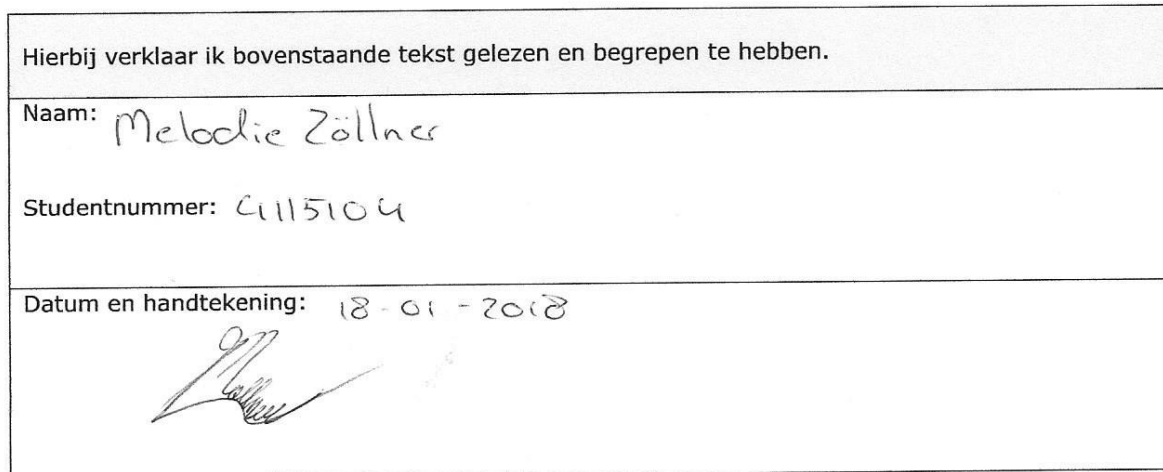 Hierbij verklaar ik bovenstaande tekst gelezen en begrepen te hebben.
Naam: Melodie Zöllner
Studentnummer: 4115104
Datum en handtekening: 18-01-2018